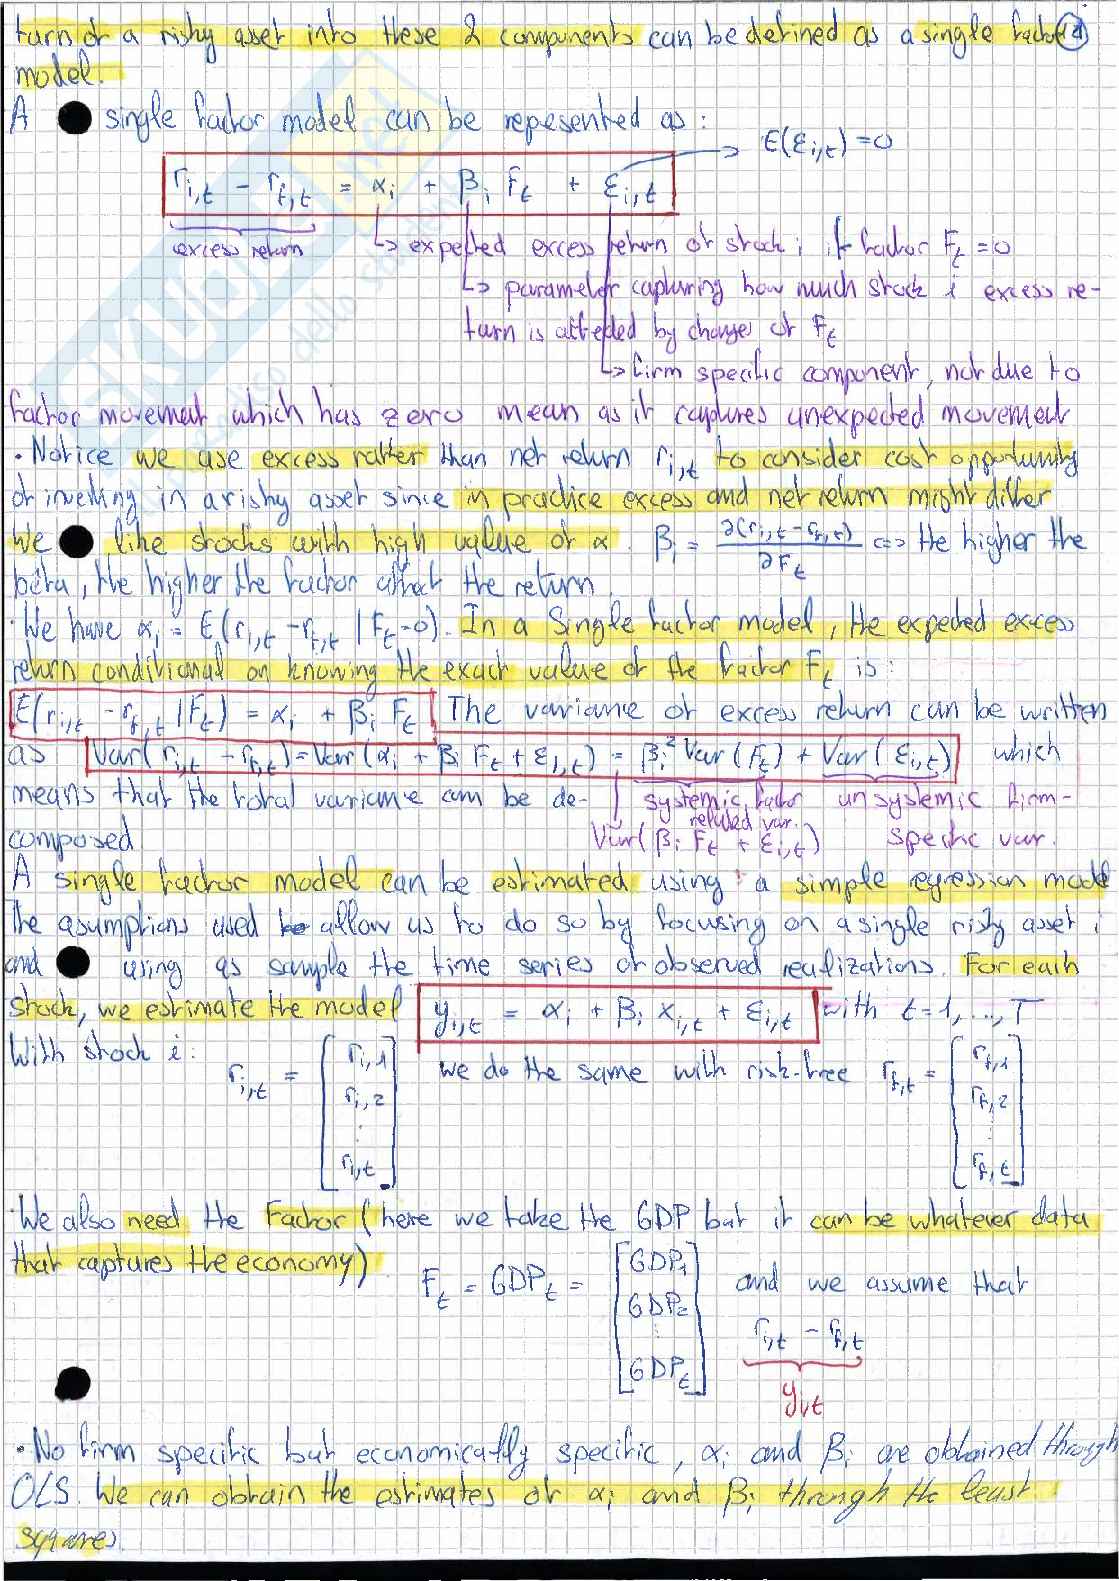 turn of a risky asset into these 2 components can be defined as a single factor
model.
A single factor model can be represented as :
r_{i,t} - r_{f,t} = α_i + β_i F_t + ε_{i,t} → E(ε_{i,t}) = 0
excess return
↳ expected excess return of stock i if factor F_t = 0
↳ parameter capturing how much stock i excess re-
turn is affected by changes of F_t
↳ firm specific component, not due to
factor movement which has zero mean as it captures unexpected movement
· Notice we use excess rather than net return r_{i,t} to consider cost opportunity
of investing in a risky asset since in practice excess and net return might differ
We like stocks with high value of α. β_i = ∂(r_{i,t} - r_{f,t}) / ∂F_t <=> the higher the
beta, the higher the factor affect the return.
· We have α_i = E(r_{i,t} - r_{f,t} | F_t = 0). In a Single factor model, the expected excess
return conditional on knowing the exact value of the factor F_t is :
E(r_{i,t} - r_{f,t} | F_t) = α_i + β_i F_t The variance of excess return can be written
as Var(r_{i,t} - r_{f,t}) = Var(α_i + β_i F_t + ε_{i,t}) = β_i² Var(F_t) + Var(ε_{i,t}) which
means that the total variance can be de- systemic, factor unsystemic firm-
related var.
composed Var(β_i F_t + ε_{i,t}) specific var.
A single factor model can be estimated using a simple regression model
The asumptions used allow us to do so by focusing on a single risky asset i
and using as sample the time series of observed realizations. For each
stock, we estimate the model y_{i,t} = α_i + β_i x_{i,t} + ε_{i,t} with t = 1, ..., T
With stock i :
r_{i,t} = [r_{i,1} r_{i,2} ⋮ r_{i,t}] we do the same with risk-free r_{f,t} = [r_{f,1} r_{f,2} ⋮ r_{f,t}]
· We also need the Factor (here we take the GDP but it can be whatever data
that captures the economy)
F_t = GDP_t = [GDP_1 GDP_2 ⋮ GDP_t] and we assume that
r_{i,t} - r_{f,t}
y_{i,t}
· No firm specific but economically specific, α_i and β_i are obtained through
OLS. We can obtain the estimates of α_i and β_i through the least
squares.